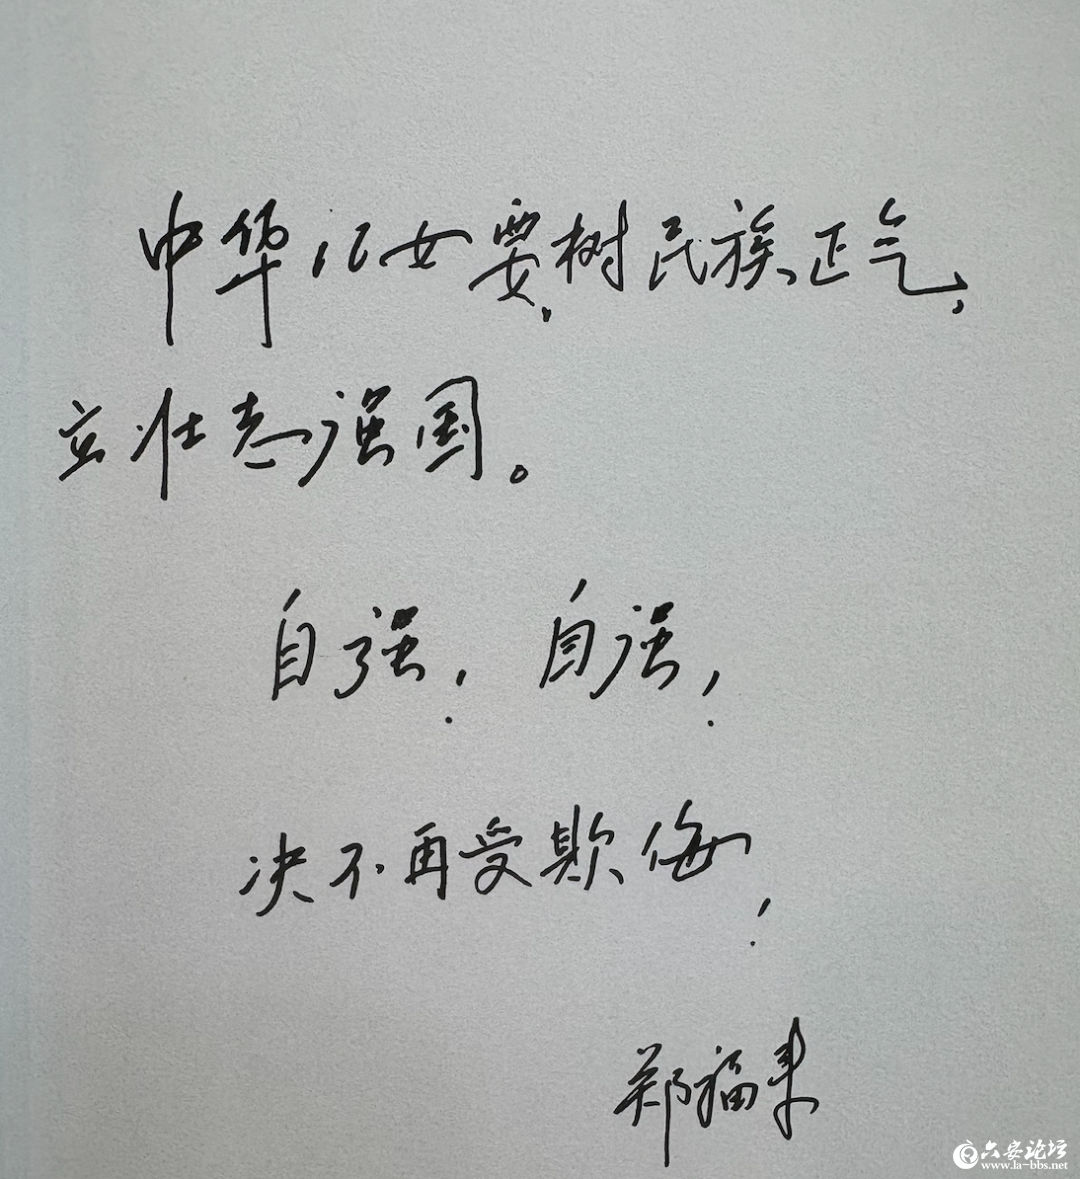 中华儿女要树民族正气,
立壮志强国。
自强! 自强!
决不再受欺侮!
郑福来
六安论坛
www.la-bbs.net